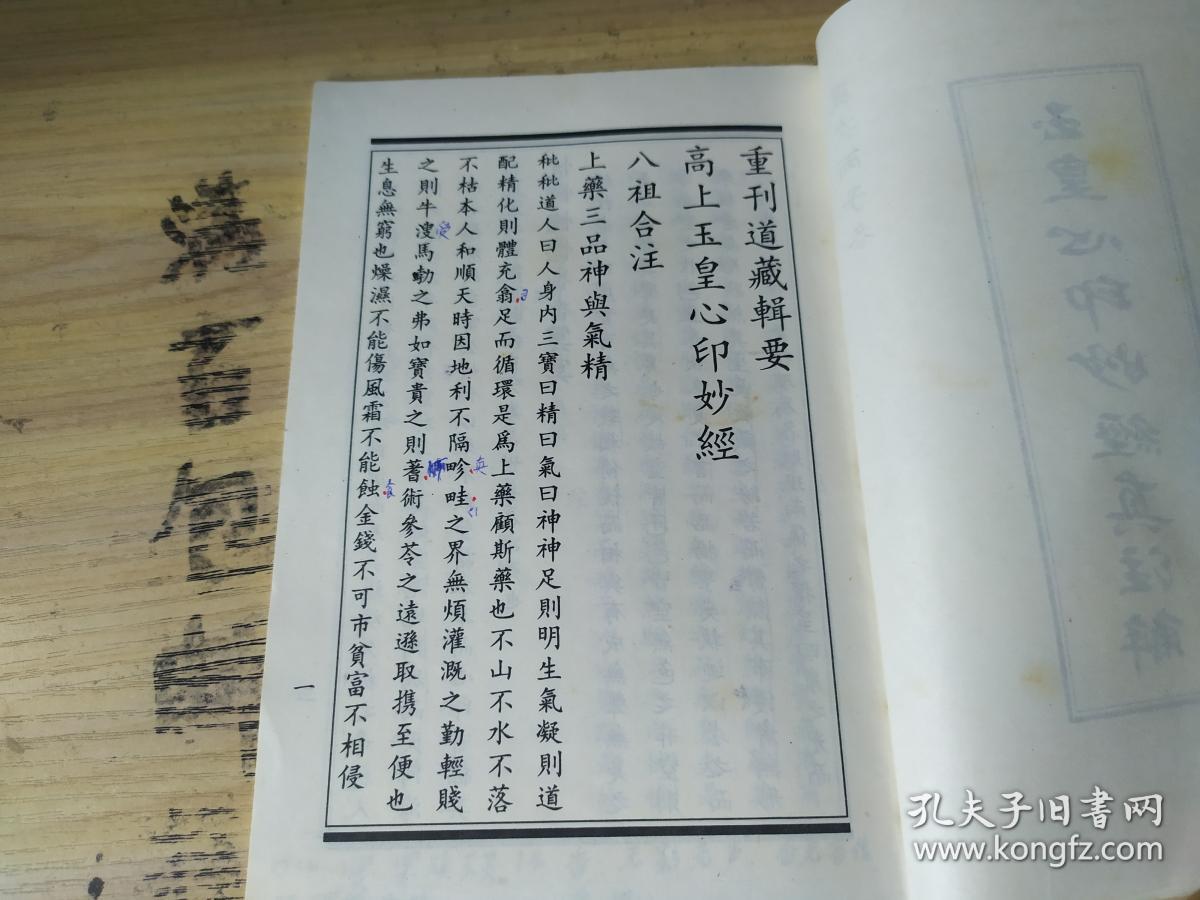 重刊道藏輯要
高上玉皇心印妙經
八祖合注
上藥三品神與氣精
秕秕道人曰人身内三寶曰精曰氣曰神神足則明生氣凝則道
配精化則體充翕足而循環是爲上藥顧斯藥也不山不水不落
不枯本人和順天時因地利不隔畛畦之界無煩灌溉之勤輕賤
之則牛溲馬勃之弗如寶貴之則蓍術參苓之遠遜取携至便也
生息無窮也燥濕不能傷風霜不能蝕金錢不可市貧富不相侵
一
玉皇心印妙經真注解
孔夫子旧书网
www.kongfz.com